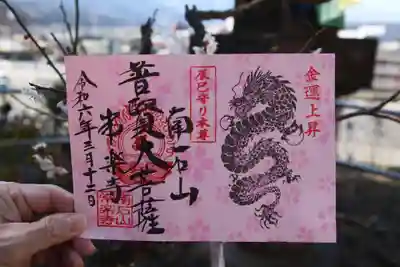 金運上昇
辰巳守り本尊
普賢大菩薩
楽寺
令和六年三月十二日